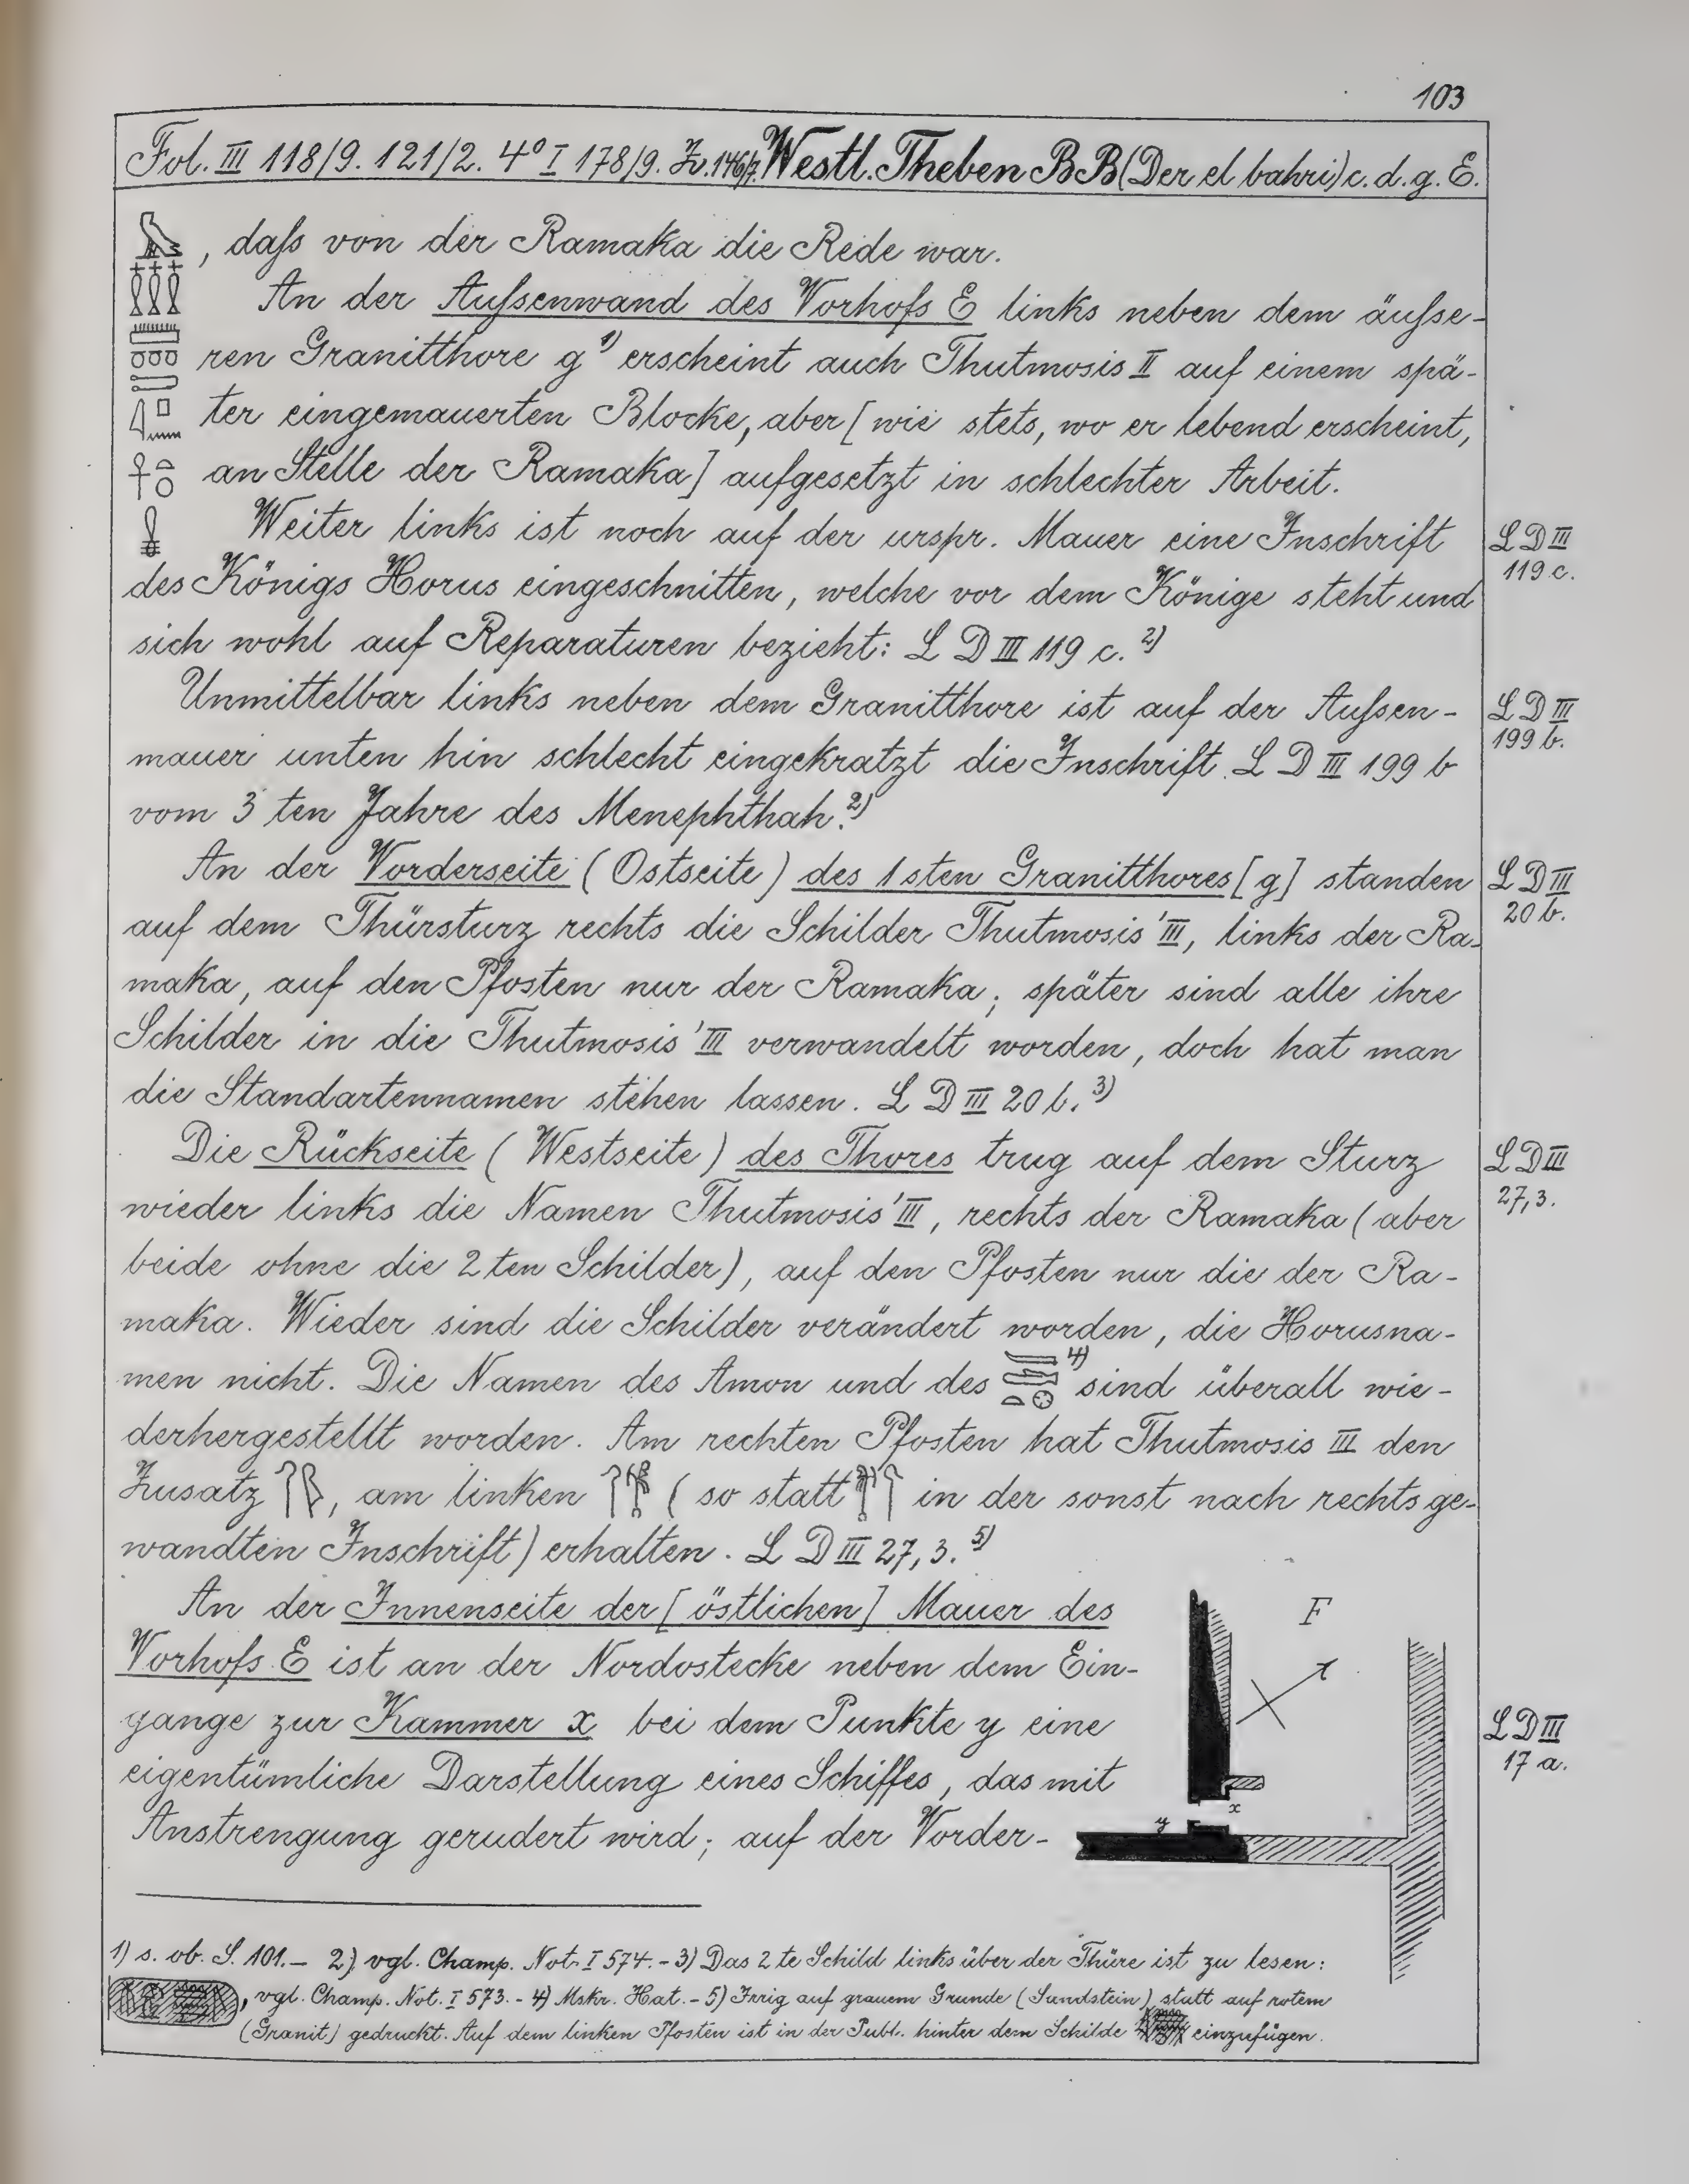 103
Fol. III 118/9. 121/2. 4° I 178/9. Zv. 146/7. Westl. Theben BB (Der el bahri) c. d. g. E.
, daſs von der Ramaka die Rede war.
An der Auſsenwand des Vorhofs E links neben dem äuſse-
ren Granitthore g 1) erscheint auch Thutmosis II auf einem spä-
ter eingemauerten Blocke, aber [wie stets, wo er lebend erscheint,
an Stelle der Ramaka] aufgesetzt in schlechter Arbeit.
Weiter links ist noch auf der urspr. Mauer eine Inschrift
L D III
119 c.
des Königs Horus eingeschnitten, welche vor dem Könige steht und
sich wohl auf Reparaturen bezieht: L D III 119 c. 2)
Unmittelbar links neben dem Granitthore ist auf der Auſsen-
L D III
199 b.
mauer unten hin schlecht eingekratzt die Inschrift L D III 199 b
vom 3 ten Jahre des Menephthah. 2)
An der Vorderseite (Ostseite) des 1 sten Granitthores [g] standen
L D III
20 b.
auf dem Thürsturz rechts die Schilder Thutmosis' III, links der Ra-
maka, auf den Pfosten nur der Ramaka; später sind alle ihre
Schilder in die Thutmosis' III verwandelt worden, doch hat man
die Standartennamen stehen lassen. L D III 20 b. 3)
Die Rückseite (Westseite) des Thores trug auf dem Sturz
L D III
27,3.
wieder links die Namen Thutmosis' III, rechts der Ramaka (aber
beide ohne die 2 ten Schilder), auf den Pfosten nur die der Ra-
maka. Wieder sind die Schilder verändert worden, die Horusna-
men nicht. Die Namen des Amon und des 4) sind überall wie-
derhergestellt worden. Am rechten Pfosten hat Thutmosis III den
Zusatz , am linken (so statt in der sonst nach rechts ge-
wandten Inschrift) erhalten. L D III 27, 3. 5)
An der Innenseite der [östlichen] Mauer des
Vorhofs E ist an der Nordostecke neben dem Ein-
gange zur Kammer x bei dem Punkte y eine
L D III
17 a.
eigentümliche Darstellung eines Schiffes, das mit
Anstrengung gerudert wird; auf der Vorder-
F
x
y
1) s. ob. S. 101. — 2) vgl. Champ. Not. I 574. - 3) Das 2 te Schild links über der Thüre ist zu lesen:
, vgl. Champ. Not. I 573. - 4) Mskr. Hat. - 5) Irrig auf grauem Grunde (Sandstein) statt auf rotem
(Granit) gedruckt. Auf dem linken Pfosten ist in der Publ. hinter dem Schilde einzufügen.